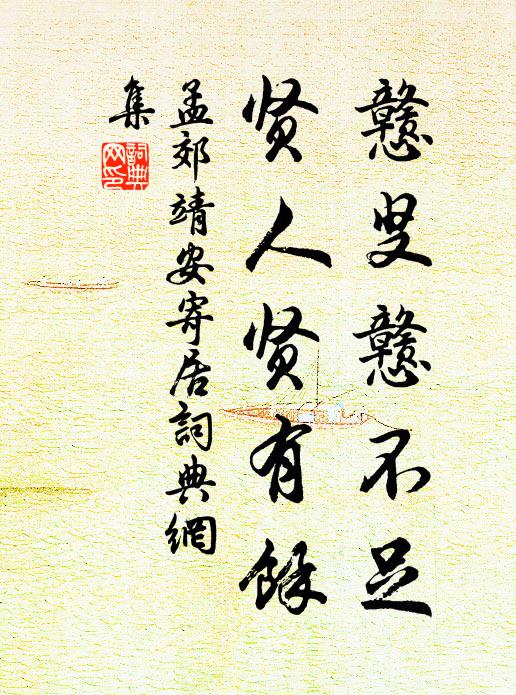 戆叟戆不足
贤人贤有餘
孟郊靖安寄居詞典網
集
詞典
网印